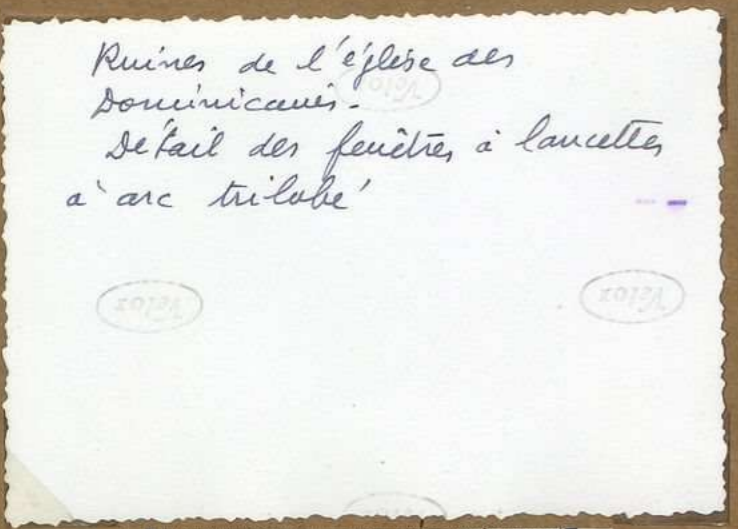 Ruines de l'église des
Dominicains.
Détail des fenêtres à lancettes
à arc trilobé
Velox
Velox
Velox